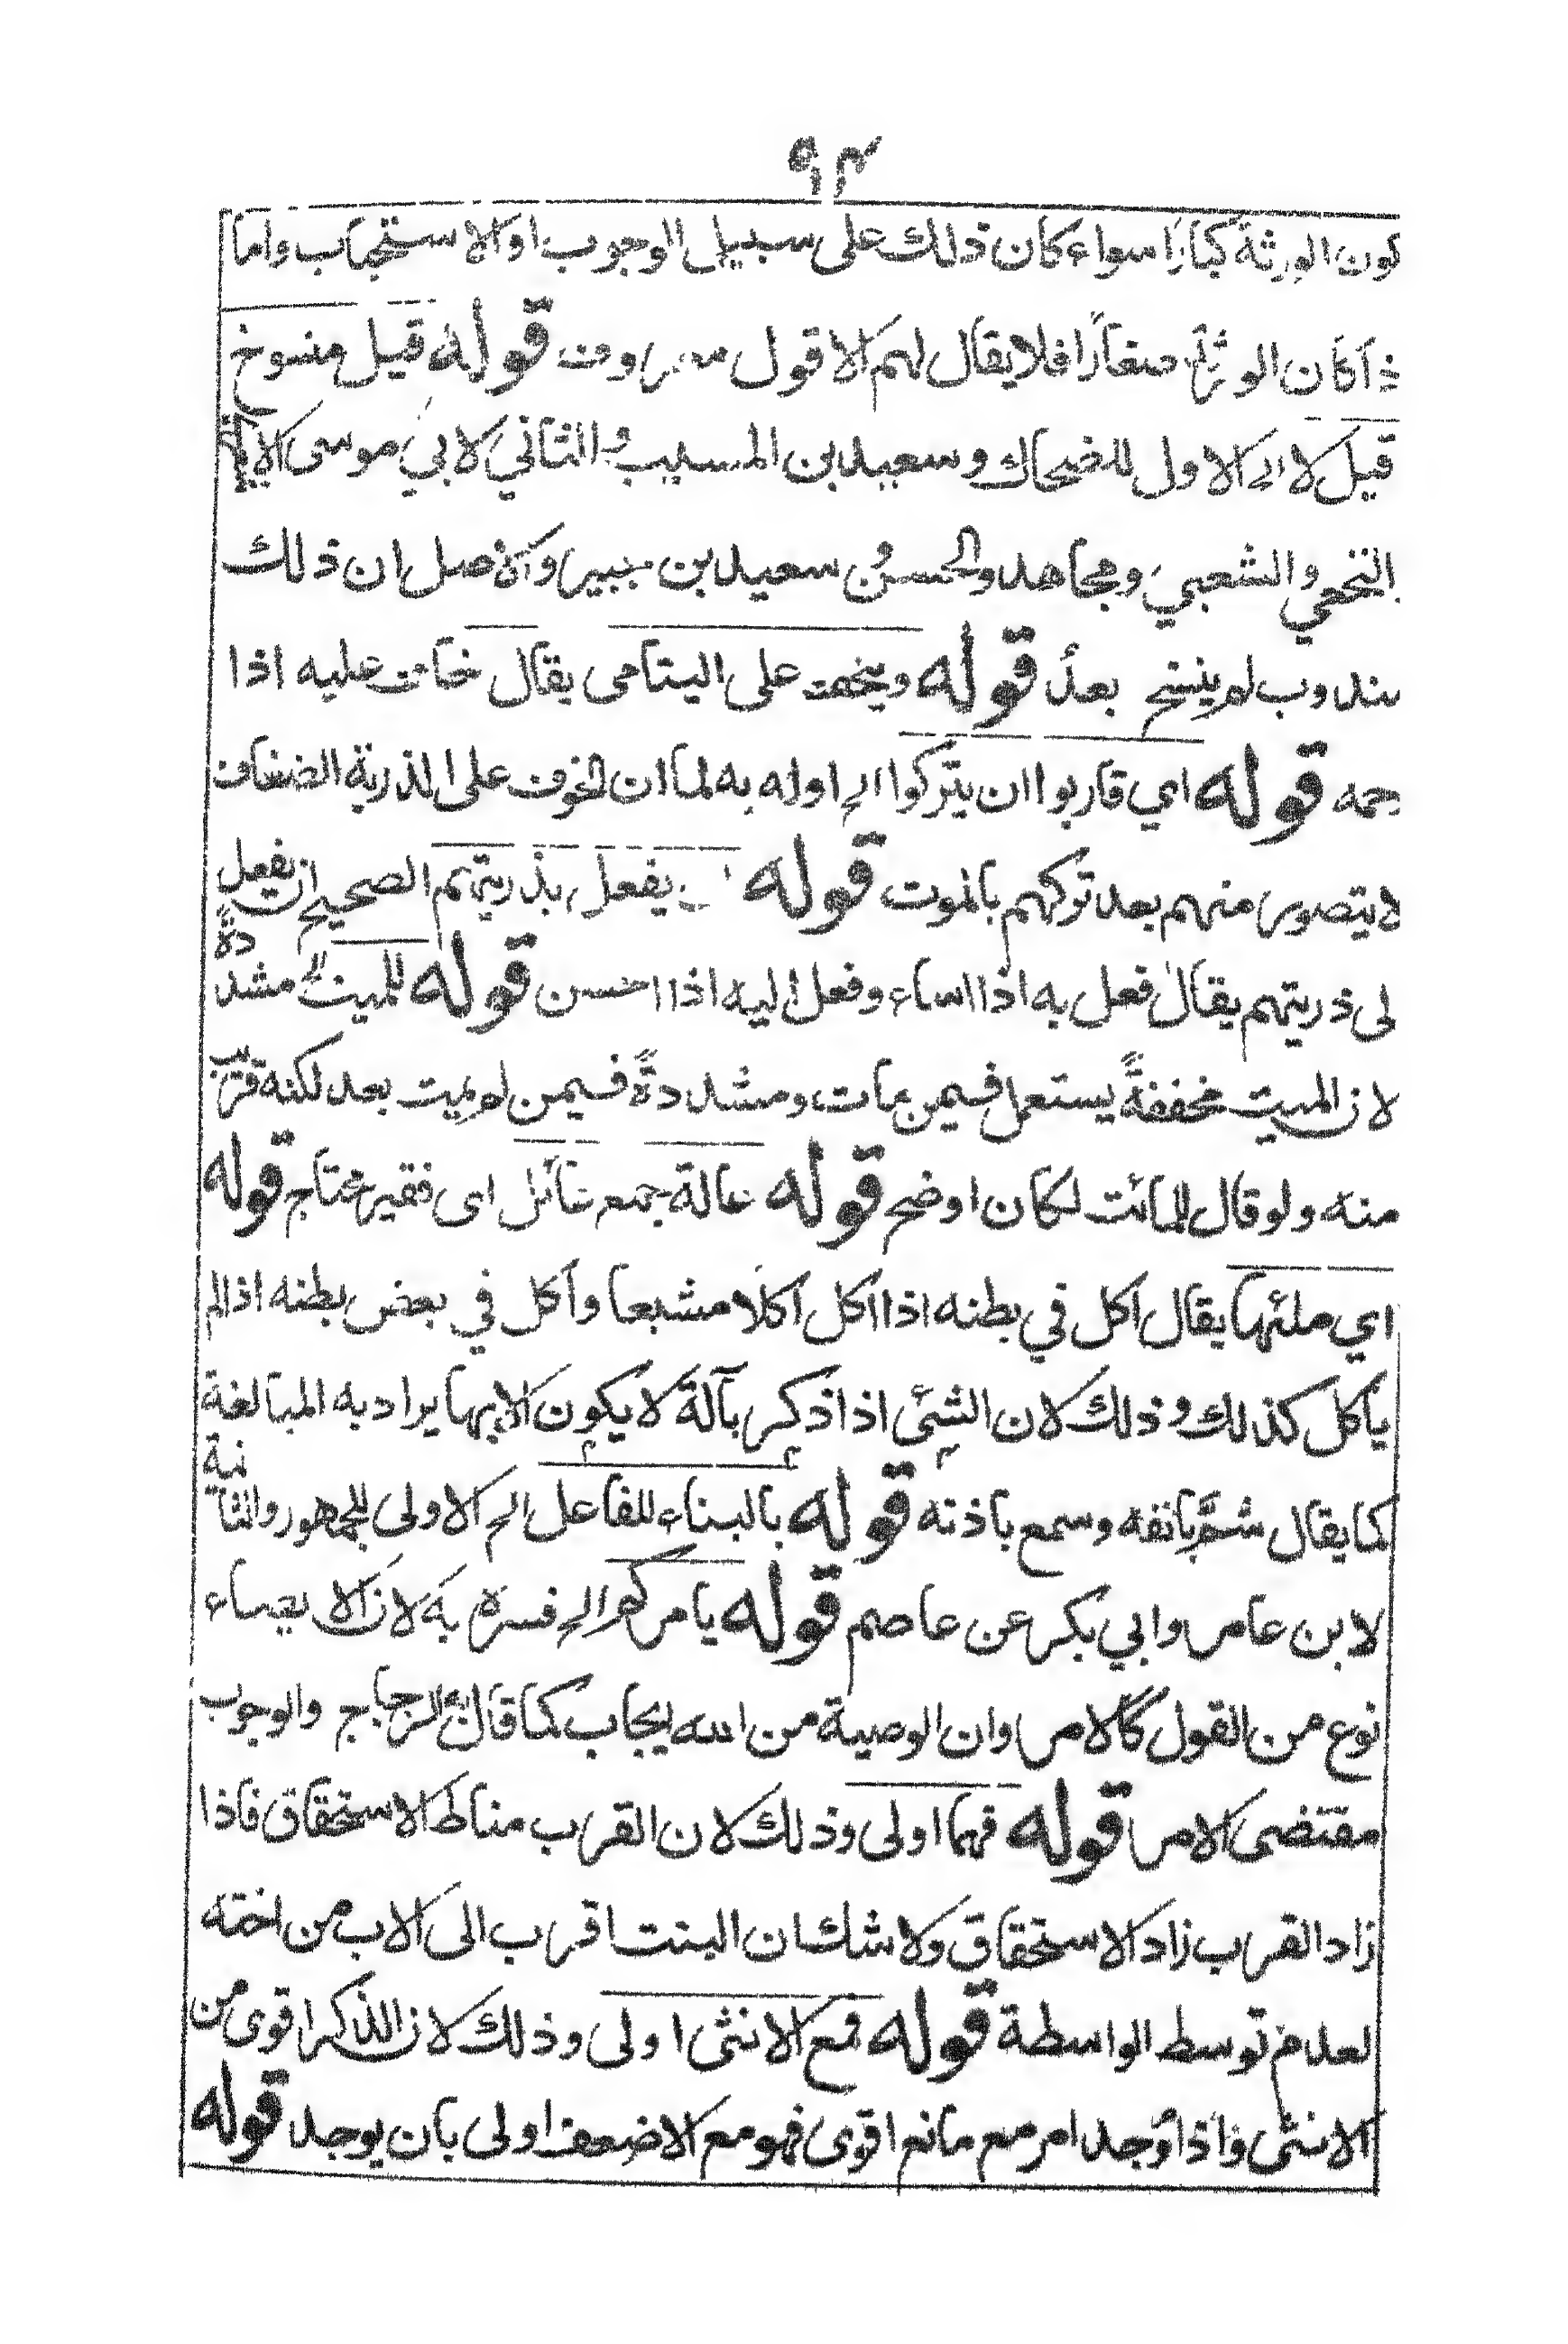 ٩٣
كون الورثة كبارا سواء كان ذلك على سبيل الوجوب او الاستحباب واما
ذاكان الورثة صغارًا فلا يقال لهم الا قول معروف قوله قيل منسوخ
قيل لا الى الاول للضحاك وسعيد بن المسيب والثاني لابي موسى الاية
النخعي والشعبي ومجاهد والحسن وسعيد بن جبير والاصل ان ذلك
مندوب لم ينسخ بعد قوله ويخف على اليتامى يقال خاف عليه اذا
رحمه قوله اي قاربوا ان يتركوا الخ اوله به لما ان الخوف على الذرية الضعاف
لا يتصور منهم بعد تركهم بالموت قوله يفعل بذريتهم الصحيح ان يفعل
لى ذريتهم يقال فعل به اذا اساء وفعل اليه اذا احسن قوله للميت الخ مشددةً
لان الميت مخففةً يستعمل فيمن مات ومشددةً فيمن لم يمت بعد لكنه قريب
منه ولو قال المائت لكان اوضح قوله عالة جمع عائل اى فقير محتاج قوله
اي ملئها يقال اكل في بطنه اذا اكل اكلا مشبعا وأكل في بعض بطنه اذا لم
يأكل كذلك وذلك لان الشئ اذا ذكر بآلة لا يكون الا بها يراد به المبالغة
كما يقال شمّ بانفه وسمع باذنه قوله بالبناء للفاعل الخ الاولى للجمهور والثانية
لابن عامر وابي بكر عن عاصم قوله يامركم الخ فسره به لان الايصاء
نوع من القول كالامر وان الوصية من الله ايجاب كما قال الزجاج والوجوب
مقتضى الامر قوله فهما اولى وذلك لان القرب مناط الاستحقاق فاذا
زاد القرب زاد الاستحقاق ولا شك ان البنت اقرب الى الاب من اخته
لعدم توسط الواسطة قوله فمع الانثى اولى وذلك لان الذكر اقوى من
الانثى فاذا وجد امر مع مانع اقوى فهو مع الاضعف اولى بان يوجد قوله